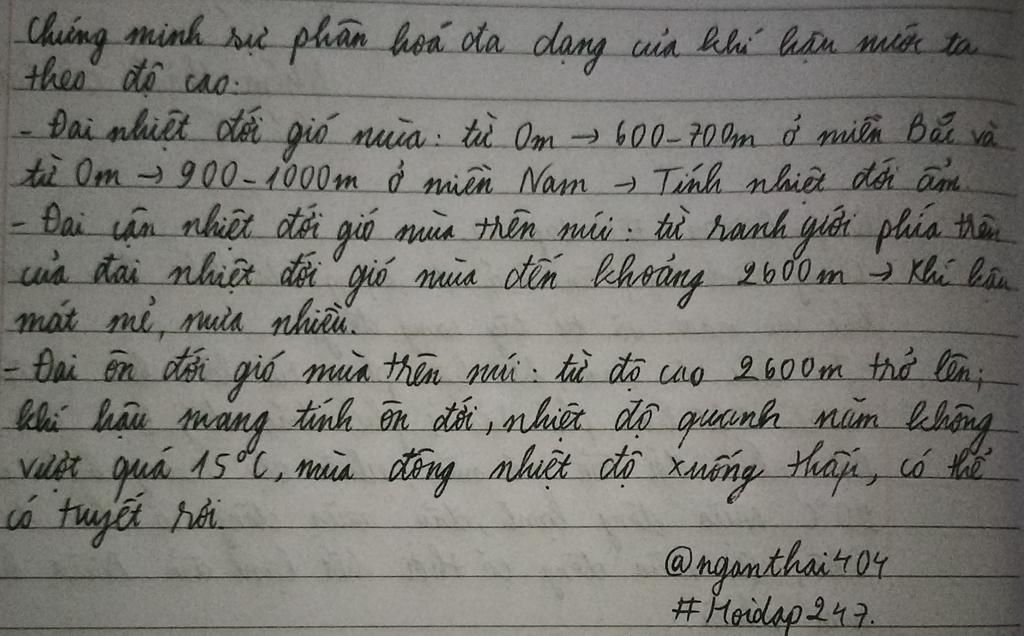 Chứng minh sự phân hoá đa dạng của khí hậu nước ta
theo độ cao:
- Đai nhiệt đới gió mùa: từ 0m → 600-700m ở miền Bắc và
từ 0m → 900-1000m ở miền Nam → Tính nhiệt đới ẩm
- Đai cận nhiệt đới gió mùa trên núi: từ ranh giới phía trên
của đai nhiệt đới gió mùa đến khoảng 2600m → Khí hậu
mát mẻ, mưa nhiều.
- Đai ôn đới gió mùa trên núi: từ độ cao 2600m trở lên;
khí hậu mang tính ôn đới, nhiệt độ quanh năm không
vượt quá 15°C, mùa đông nhiệt độ xuống thấp, có thể
có tuyết rơi.
@nganthai404
#Hoidap247.